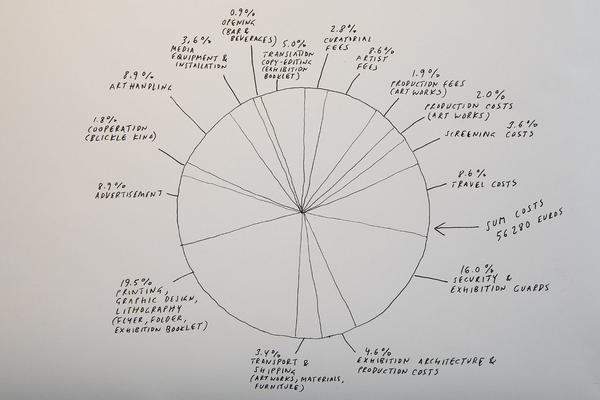 0.9%
OPENING
(BAR &
BEVERAGES)
5.0%
TRANSLATION
COPY-EDITING
(EXHIBITION
BOOKLET)
2.8%
CURATORIAL
FEES
8.6%
ARTIST
FEES
1.9%
PRODUCTION FEES
(ART WORKS)
2.0%
PRODUCTION COSTS
(ART WORKS)
3.6%
SCREENING COSTS
8.6%
TRAVEL COSTS
SUM COSTS
56280 EUROS
16.0%
SECURITY &
EXHIBITION GUARDS
4.6%
EXHIBITION ARCHITECTURE &
PRODUCTION COSTS
3.4%
TRANSPORT &
SHIPPING
(ART WORKS, MATERIALS,
FURNITURE)
19.5%
PRINTING,
GRAPHIC DESIGN,
LITHOGRAPHY
(FLYER, FOLDER,
EXHIBITION BOOKLET)
8.9%
ADVERTISEMENT
1.8%
COOPERATION
(BLICKLE KINO)
8.9%
ART HANDLING
3.6%
MEDIA
EQUIPMENT &
INSTALLATION